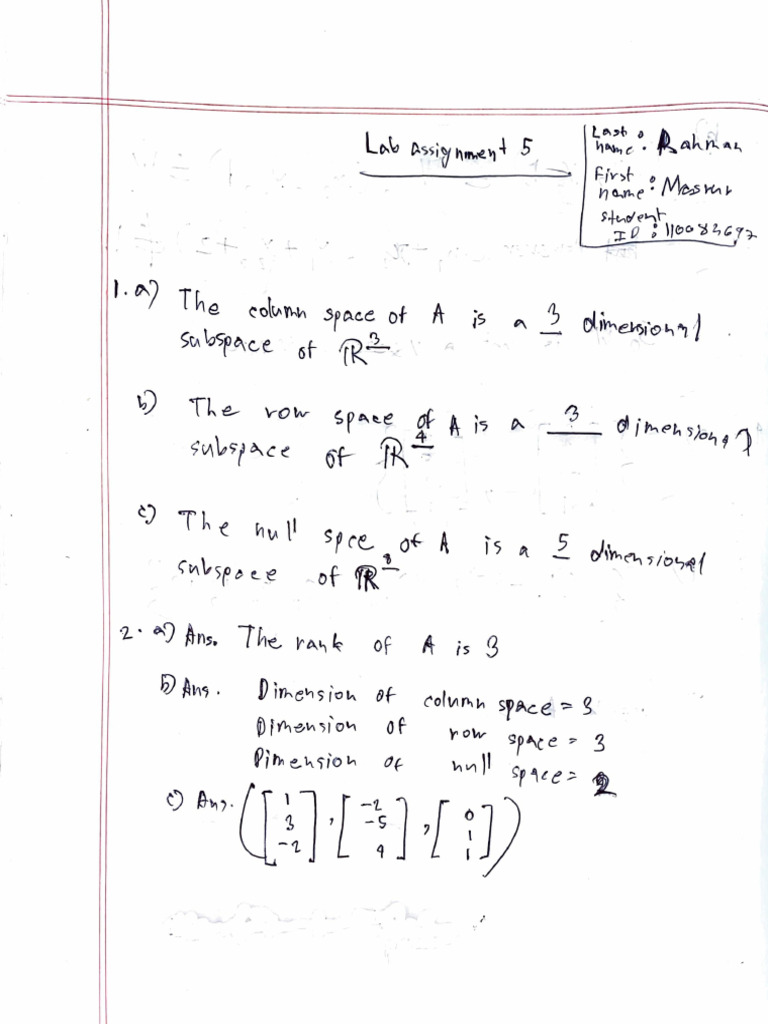 Lab Assignment 5
Last name: Rahman
First name: Masrur
Student ID: 110083697
1. a) The column space of A is a 3 dimensional
subspace of ℝ3
b) The row space of A is a 3 dimensional
subspace of ℝ4
c) The null spce of A is a 5 dimensional
subspace of ℝ8
2. a) Ans. The rank of A is 3
b) Ans. Dimension of column space = 3
Dimension of row space = 3
Dimension of null space = 2
c) Ans. ([1 3 -2], [-2 -5 4], [0 1 1])